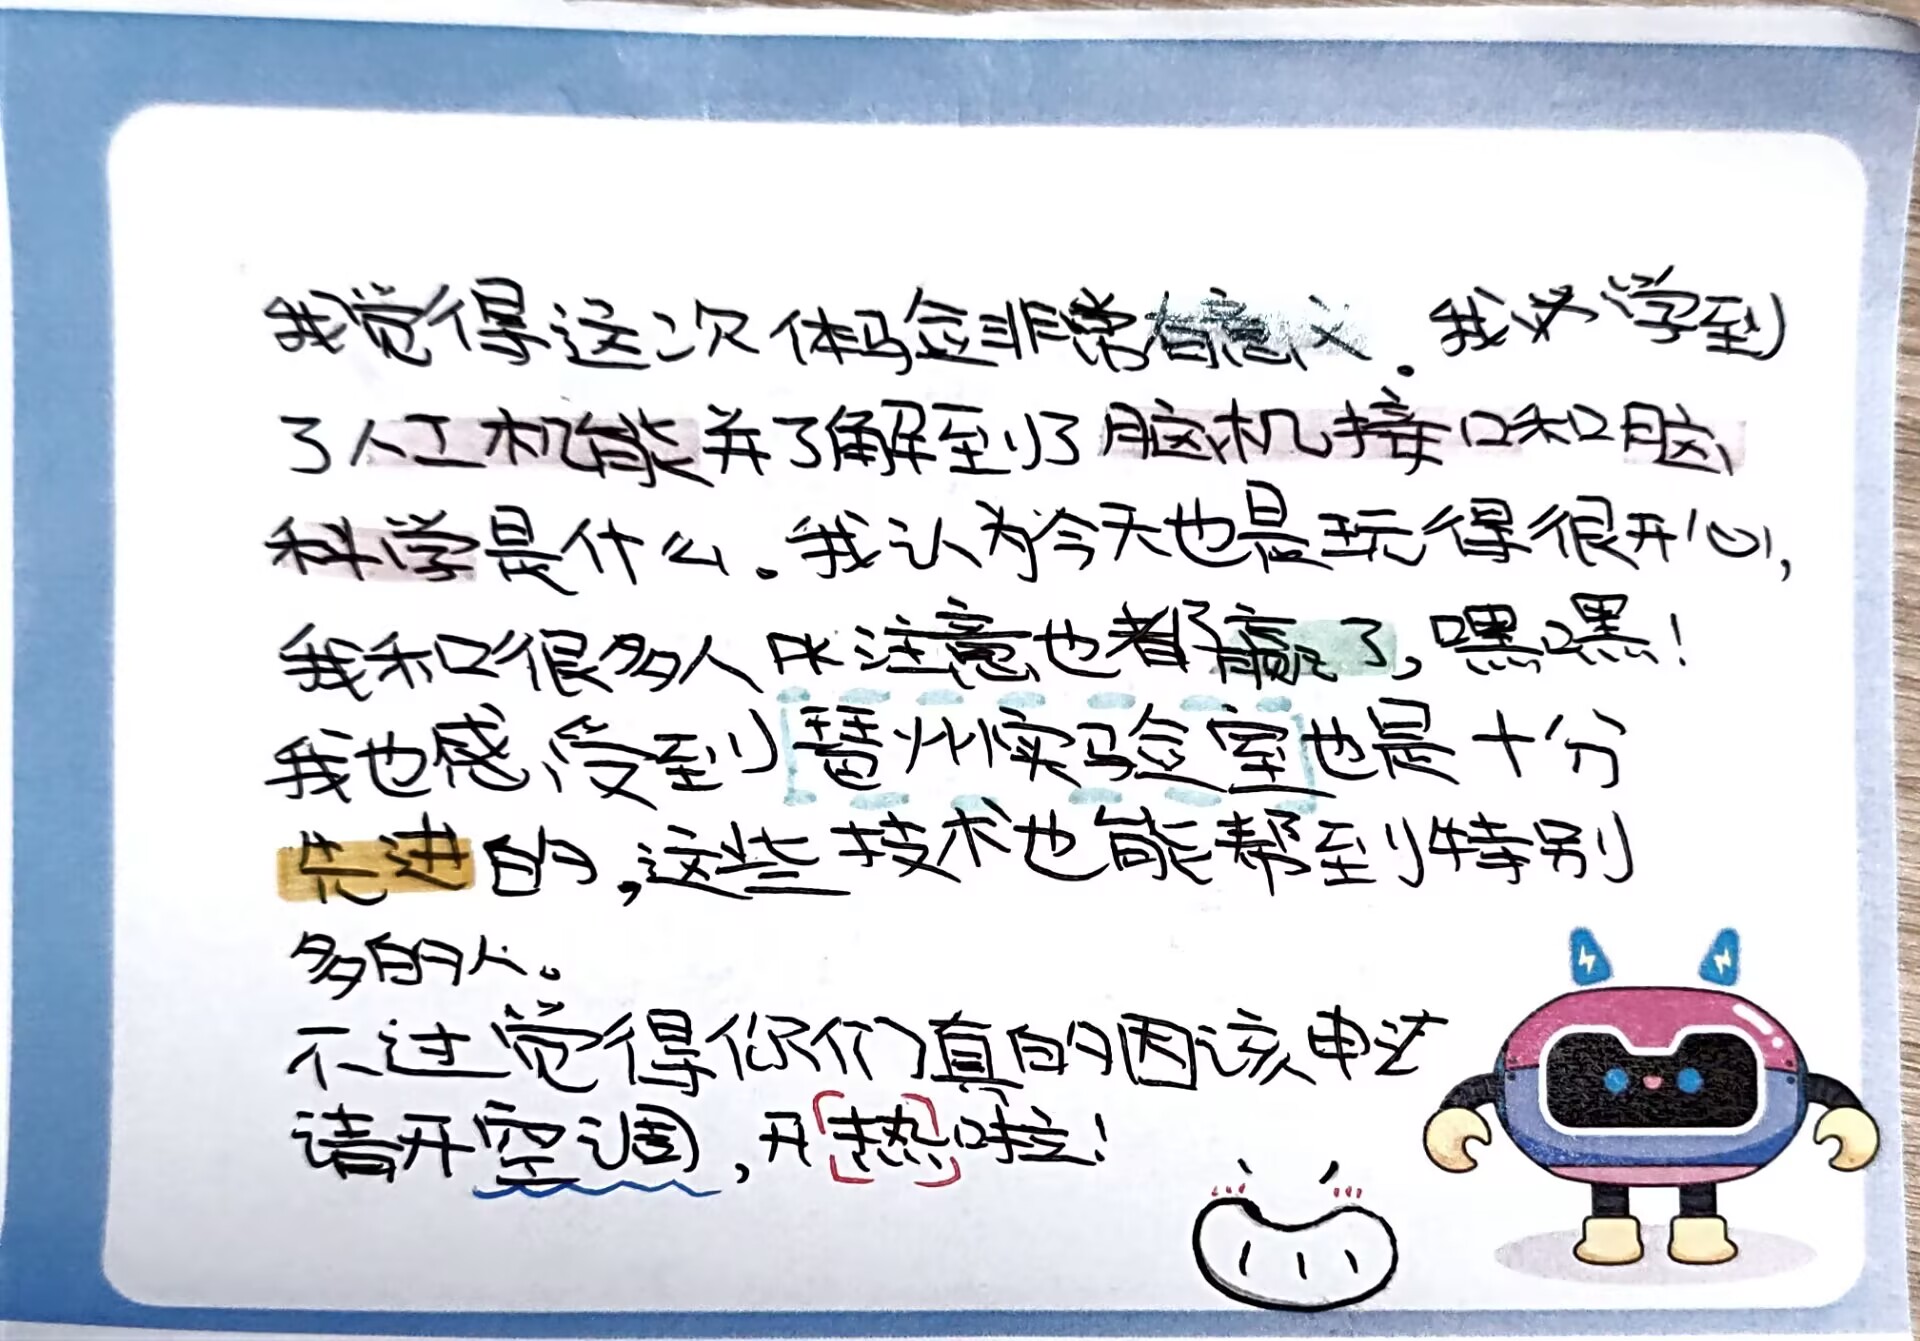 我觉得这次体验非常有意义.我学到
了人工机能并了解到了脑机接口和脑
科学是什么.我认为今天也是玩得很开心,
我和很多人比注意也都赢了,嘿嘿!
我也感受到琶州实验室也是十分
先进的,这些技术也能帮到特别
多的人。
不过觉得你们真的因该申
请开空调,热啦!